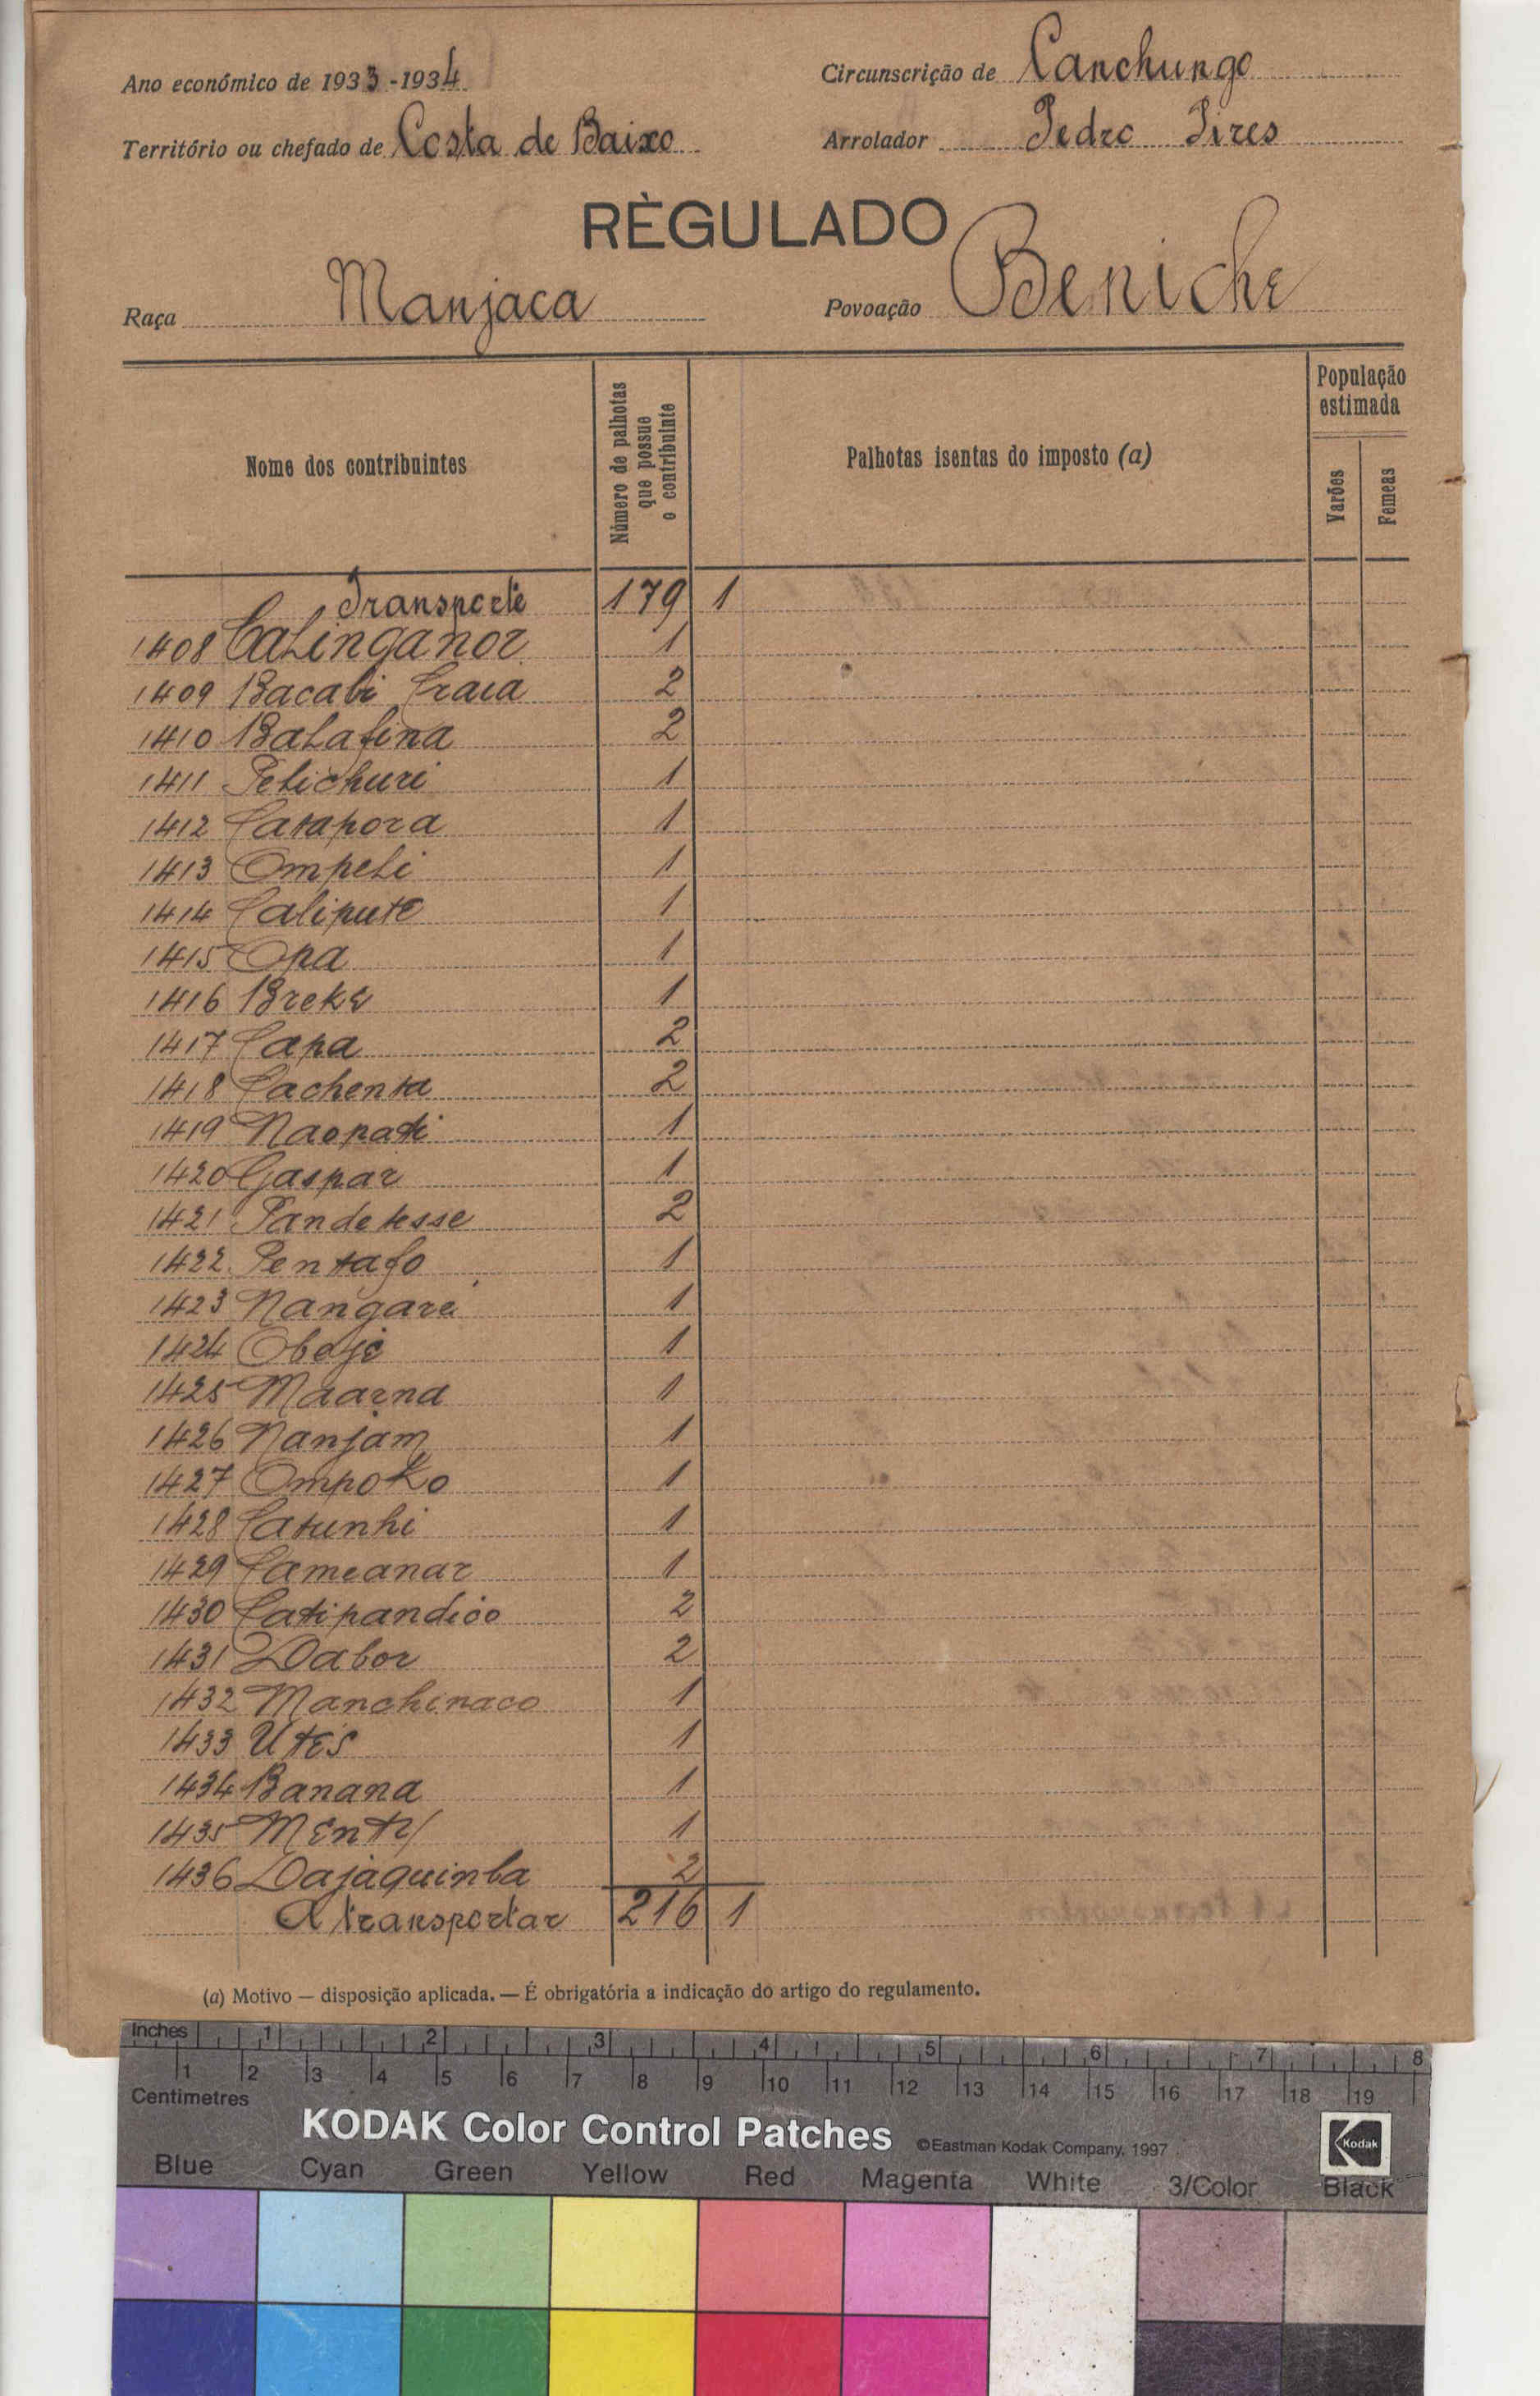 Ano económico de 1933-1934
Circunscrição de Canchungo
Território ou chefado de Costa de Baixo
Arrolador Pedro Pires
RÈGULADO
Raça Manjaca
Povoação Beniche
Nome dos contribuintes
Número de palhotas que possue o contribuinte
Palhotas isentas do imposto (a)
População estimada
Varões
Femeas
Transporte 179 1
1408 Calinganor 1
1409 Bacabi Craia 2
1410 Balafina 2
1411 Pelichuri 1
1412 Catapora 1
1413 Ompeli 1
1414 Calipute 1
1415 Opa 1
1416 Breke 1
1417 Capa 2
1418 Cachenta 2
1419 Naopati 1
1420 Gaspar 1
1421 Pandetesse 2
1422 Pentafo 1
1423 Nangaré 1
1424 Oboje 1
1425 Maarna 1
1426 Nanjam 1
1427 Ompoko 1
1428 Catunhi 1
1429 Cameanar 1
1430 Catipandico 2
1431 Dabor 2
1432 Manchinaco 1
1433 Utes 1
1434 Banana 1
1435 Mentr/ 1
1436 Dajaquinba 2
A transportar 216 1
(a) Motivo — disposição aplicada. — É obrigatória a indicação do artigo do regulamento.
Inches 1 2 3 4 5 6 7 8
1 2 3 4 5 6 7 8 9 10 11 12 13 14 15 16 17 18 19
Centimetres
KODAK Color Control Patches ©Eastman Kodak Company, 1997 Kodak
Blue Cyan Green Yellow Red Magenta White 3/Color Black